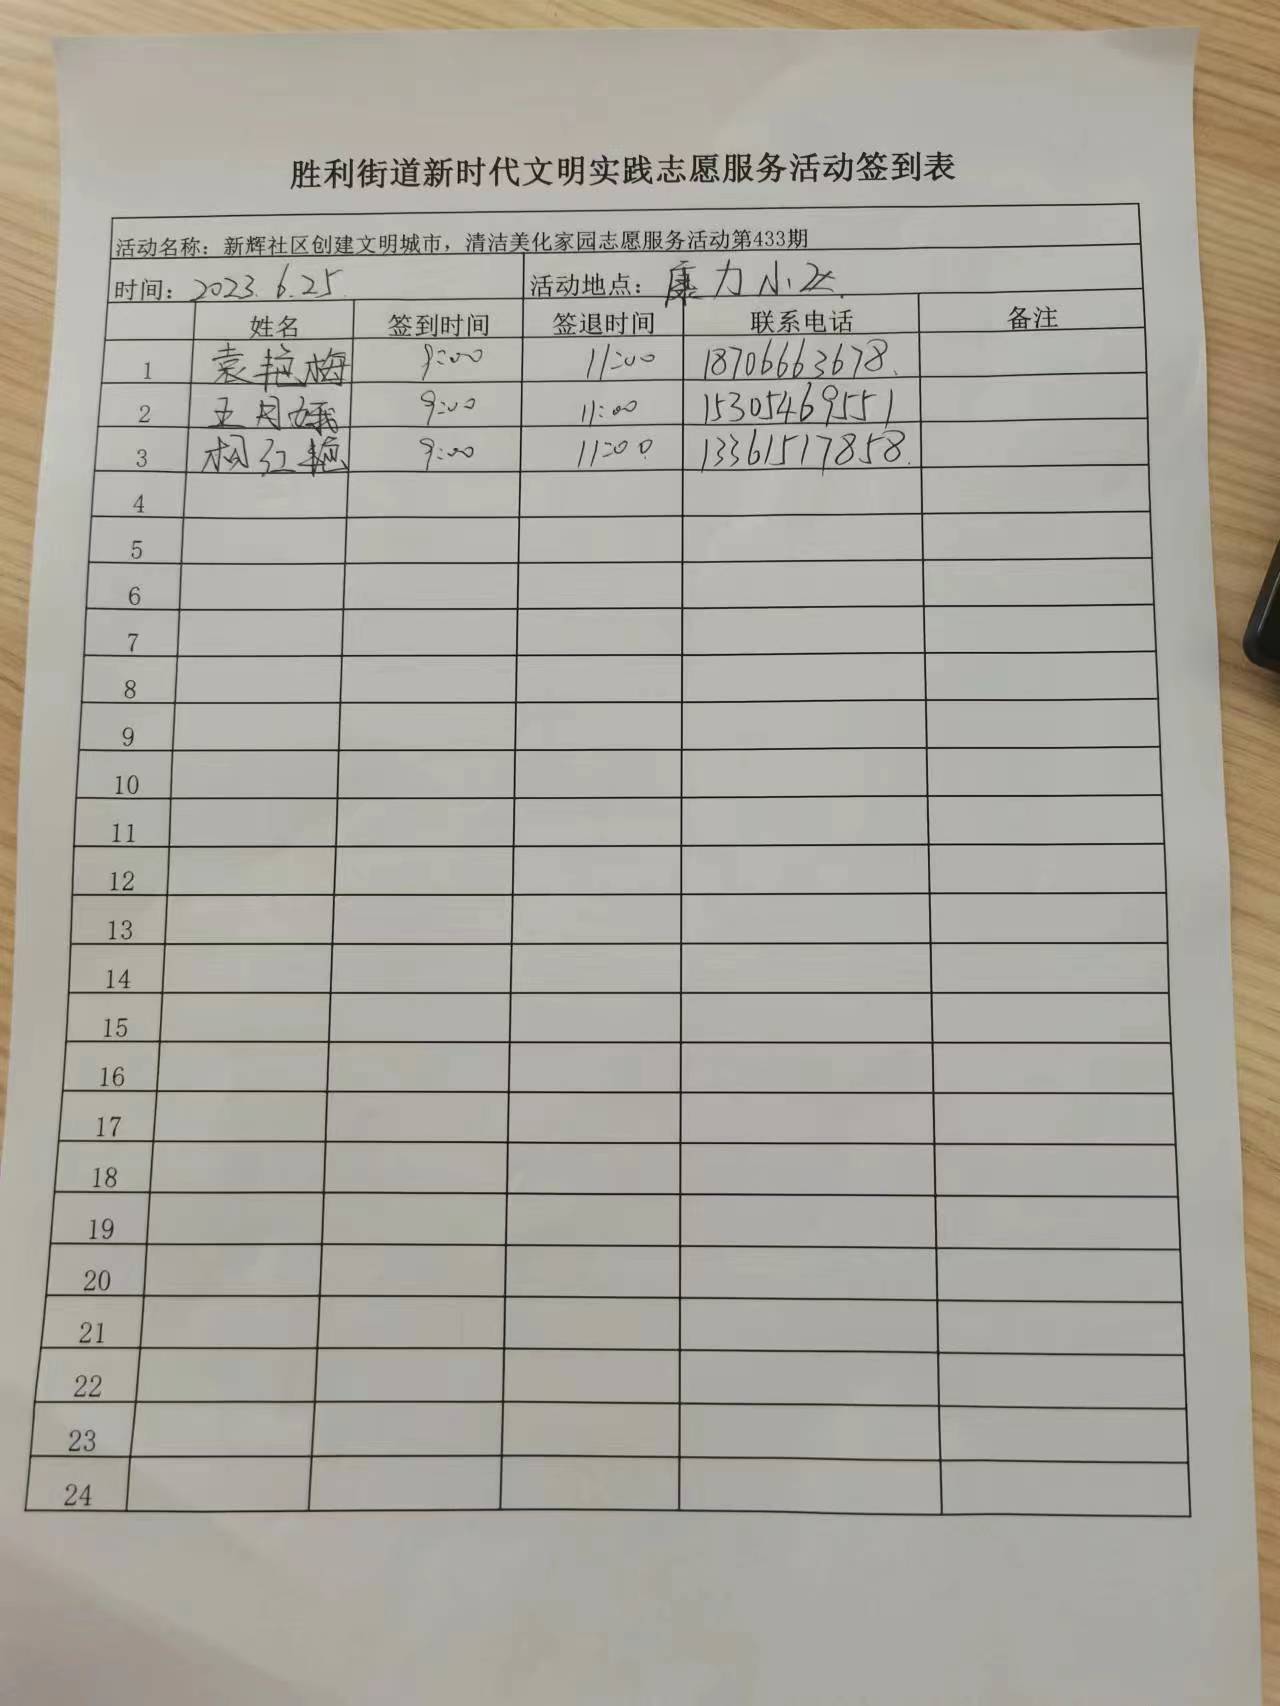 胜利街道新时代文明实践志愿服务活动签到表
活动名称：新辉社区创建文明城市，清洁美化家园志愿服务活动第433期
时间：2023.6.25. 活动地点：康力小区.
姓名 签到时间 签退时间 联系电话 备注
1 袁艳梅 9:00 11:00 18706663678.
2 王月娥 9:00 11:00 15305469551
3 红艳 9:00 11:00 13361517858.
4
5
6
7
8
9
10
11
12
13
14
15
16
17
18
19
20
21
22
23
24